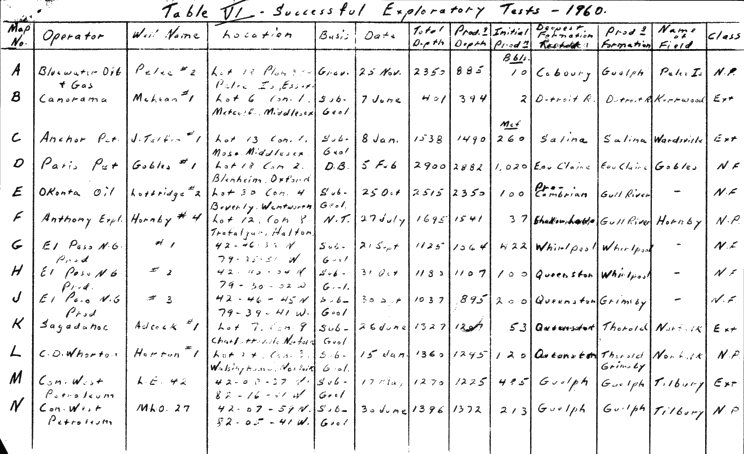 Table VI - Successful Exploratory Tests - 1960.
Map No. Operator Well Name Location Basis Date Total Depth Prod. Depth Initial Prod. Deepest Formation Prod. Formation Name of Field Class
Bbls.
A Bluewater Oil Pelee #2 Lot 25 Nov. 2350 885 10 Cobourg Guelph Pelee Is N.P.
& Gas Pelee Is, Essex
B Canorama #1 Lot 6 Con. 1, Sub- 7 June 401 394 2 Detroit R. Detroit R. Kerrwood Ext
Metcalf, Middlesex Geol
Mcf
C Anchor Pet. #1 Lot 13 Con. 1, Sub- 8 Jan. 1538 1490 260 Salina Salina Wardsville Ext
Mosa Middlesex Geol
D Paris Pet Gobles #1 Lot Con 2, D.B. 5 Feb 2900 2882 1,020 Eau Claire Eau Claire Gobles N.F
Blenheim, Oxford
E Okonta Oil Lottridge #2 Lot 30 Con. 4 Sub- 25 Oct 2515 2350 100 Pre-Cambrian Gull River - N.F
Beverly, Wentworth Geol.
F Anthony Expl. Hornby #4 Lot 12, Con 8 N.T. 27 July 1695 1541 37 Gull River Hornby N.P.
Trafalgar, Halton
G El Paso N.G. #1 Sub- 21 Sept 1125 422 Whirlpool Whirlpool - N.F
Prod Geol
H El Paso N.G #2 Sub- 31 Oct 1180 1107 100 Queenston Whirlpool - N.F
Prod. Geol.
J El Paso N.G #3 42-46-45 N Sub- 1037 895 200 Queenston Grimsby - N.F.
Prod 79-39-41 W. Geol
K Sagadahoc Adcock #1 Lot 7, Con 9 Sub- 26 June 1327 53 Queenston Thorold Norfolk Ext
Charlotteville Norfolk Geol
L C.D. Whorton #1 Lot Sub- 15 Jan 1360 1245 120 Queenston Thorold Norfolk N.P
Walsingham, Norfolk Geol. Grimsby
M Con. West L.E. 42 Sub- 1270 1225 Guelph Guelph Tilbury Ext
Petroleum Geol
N Con. West 27 42-07-59 N Sub- 30 June 1396 1372 213 Guelph Guelph Tilbury N P
Petroleum 82-05-41 W. Geol